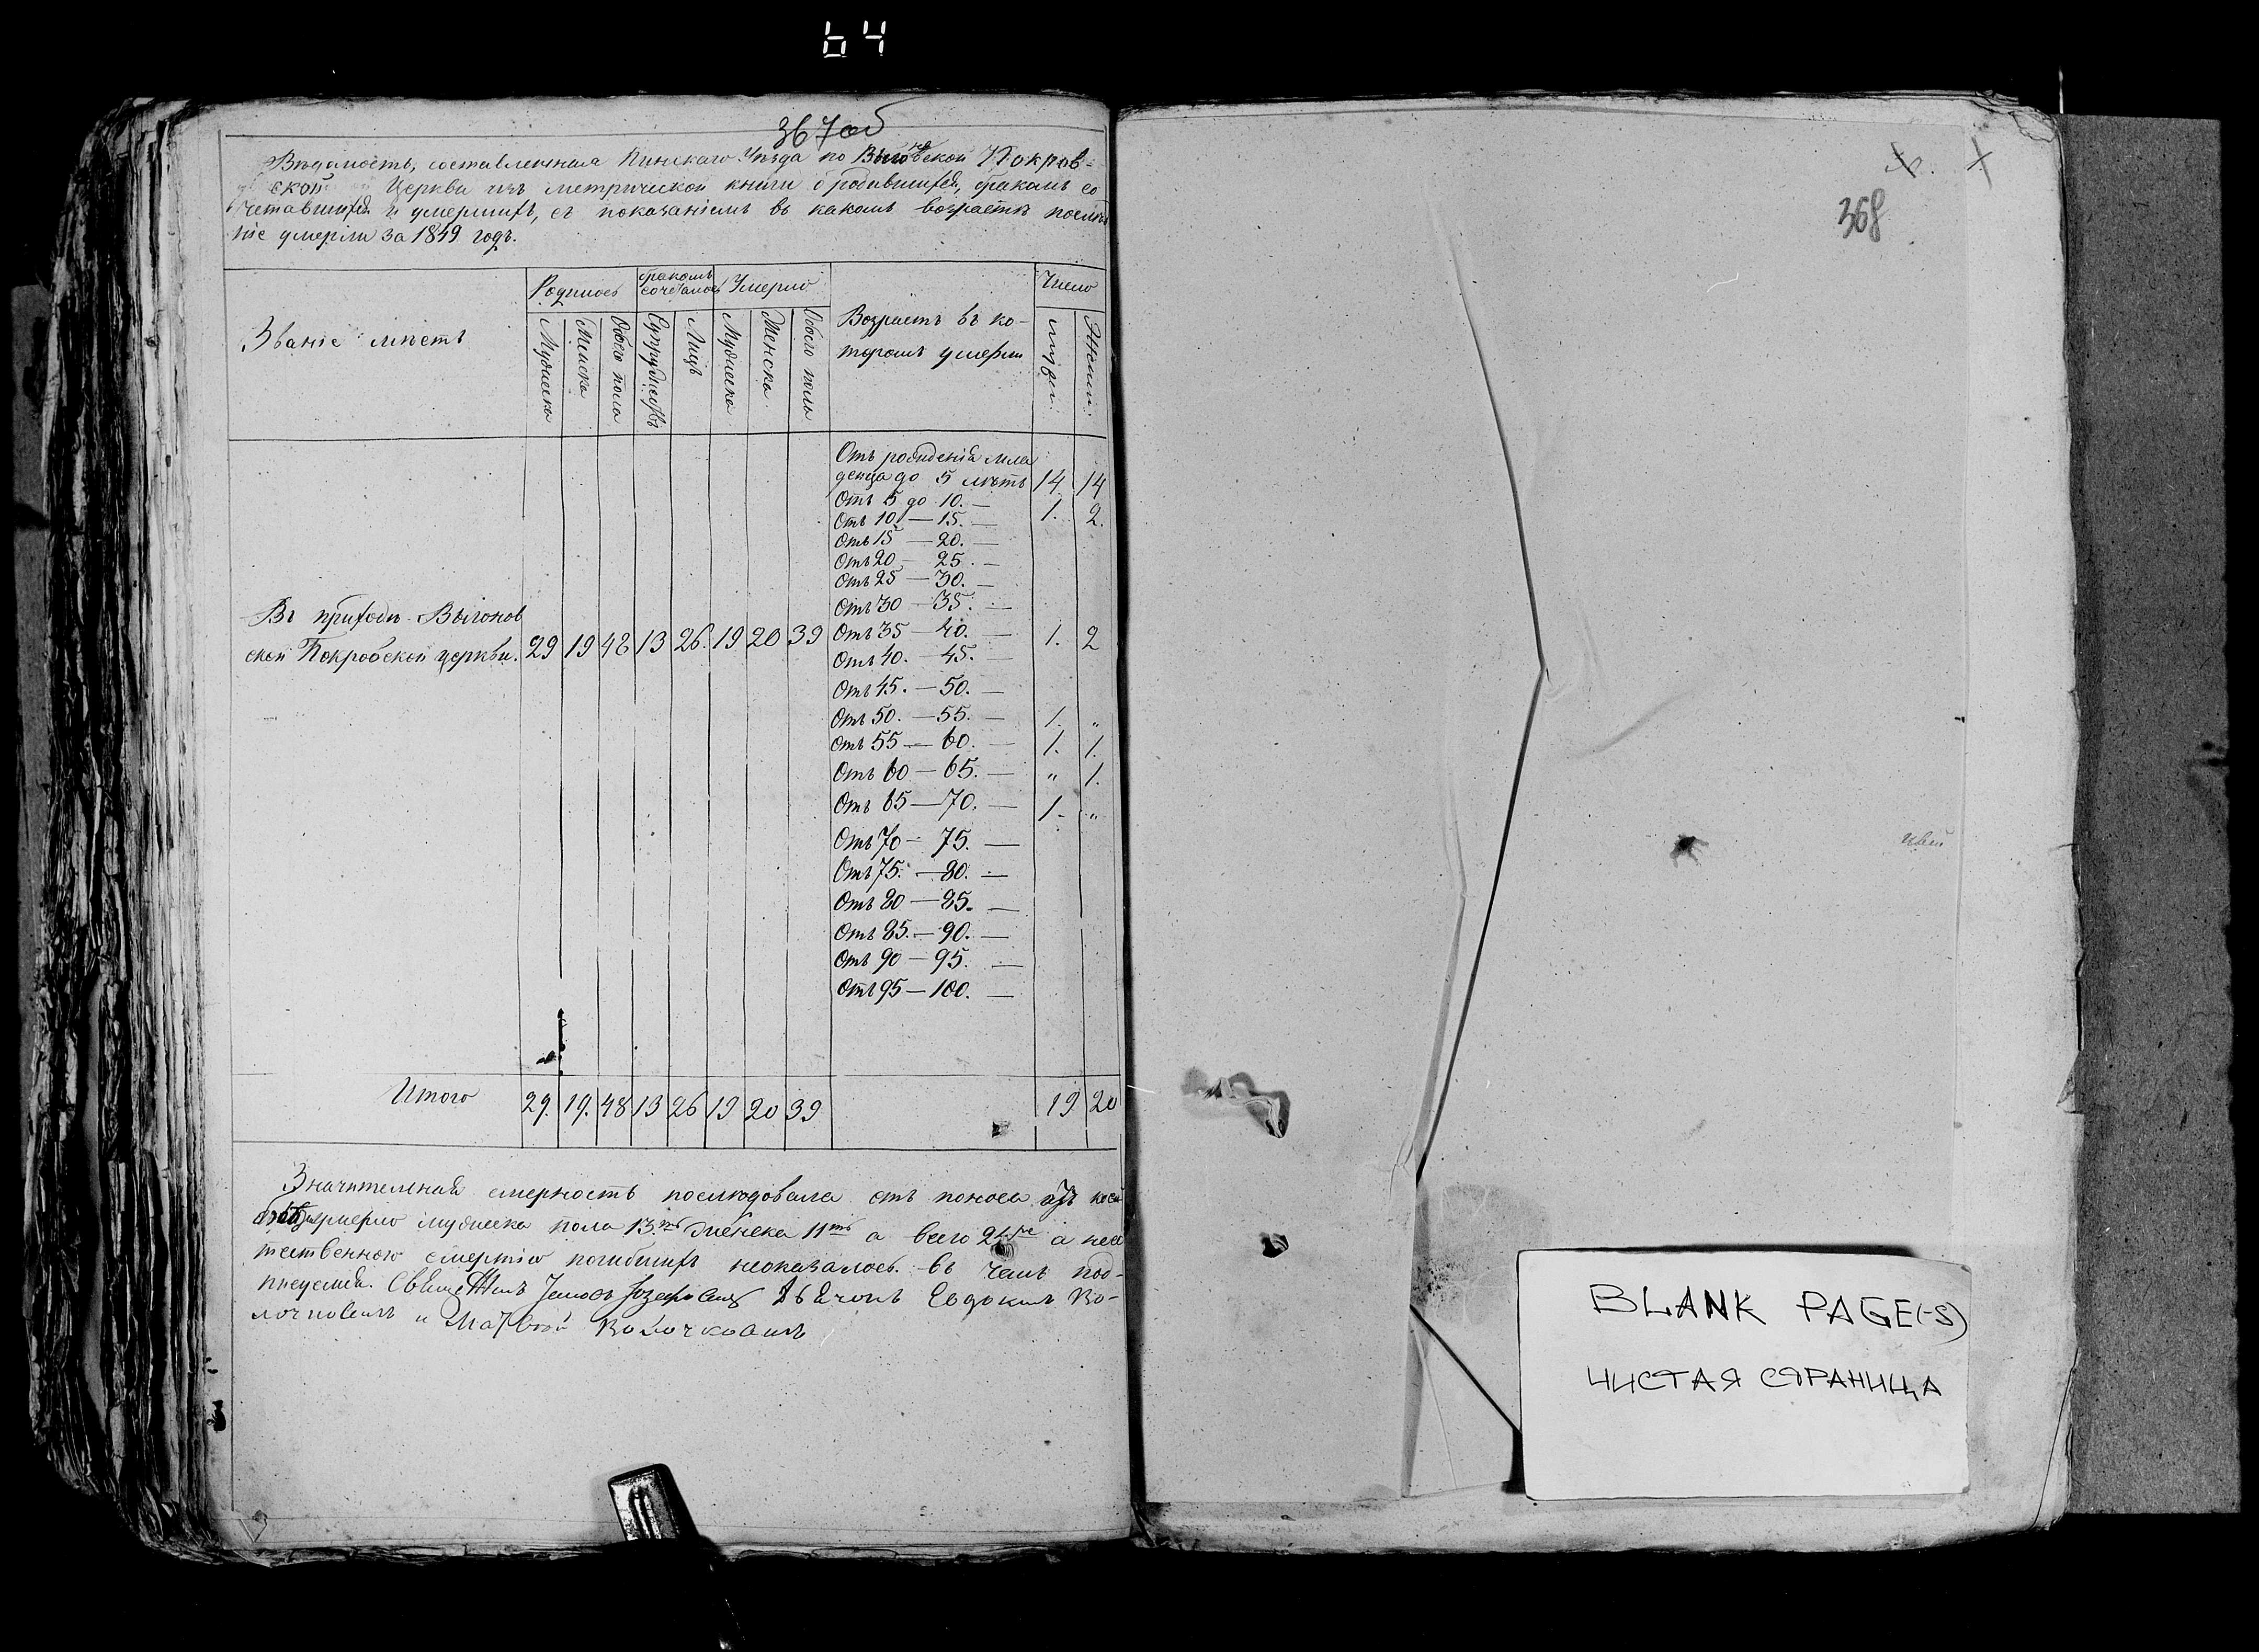 64
367 об
Вѣдомость, составленная Пинскаго Уѣзда по Выгоновской Покров-
ской Церкви изъ метрической книги о родившихся, бракомъ со
четавшихся и умершихъ, съ показаніемъ въ какомъ возрастѣ послѣд
ніе умерли за 1849 годъ.
Званіе мѣстъ
Родилось
бракомъ сочеталось
Умерло
Возрастъ въ ко-
торомъ умерли
Число
Мужеска
Женска
Обоего пола
Супружествъ
Лицъ
Мужеска
Женска
Обоего пола
мужи:
Женш:
Отъ рожденія мла
денца до 5 лѣтъ 14. 14
Отъ 5 до 10. —
Отъ 10 — 15. — 1. 2.
Отъ 15 — 20. —
Отъ 20 — 25. —
Отъ 25 — 30. —
Отъ 30 — 35. —
Въ приходѣ Выгонов
ской Покровской церкви. 29 19 48 13 26. 19 20 39
Отъ 35 — 40. — 1. 2
Отъ 40. — 45. —
Отъ 45. — 50. —
Отъ 50. — 55. — 1. „
Отъ 55 — 60. — 1. 1.
Отъ 60 — 65. — „ 1.
Отъ 65 — 70. — 1. „
Отъ 70 — 75. —
Отъ 75. — 80. —
Отъ 80 — 85. —
Отъ 85. — 90. —
Отъ 90 — 95. —
Отъ 95 — 100. —
Итого 29. 19. 48 13 26 19 20 39 19 20
Значительная смерность послѣдовала отъ поноса изъ коей
умерло мужеска пола 13.ть женска 11ть а всего 24ре а неес
тественною смертію погибшихъ неоказалось. Въ чемъ под-
писуемся. Священникъ Іосифовичъ Дьячокъ Евдокимъ Во-
лочковичъ и Волочковичъ
368
BLANK PAGE(-S)
ЧИСТАЯ СТРАНИЦА